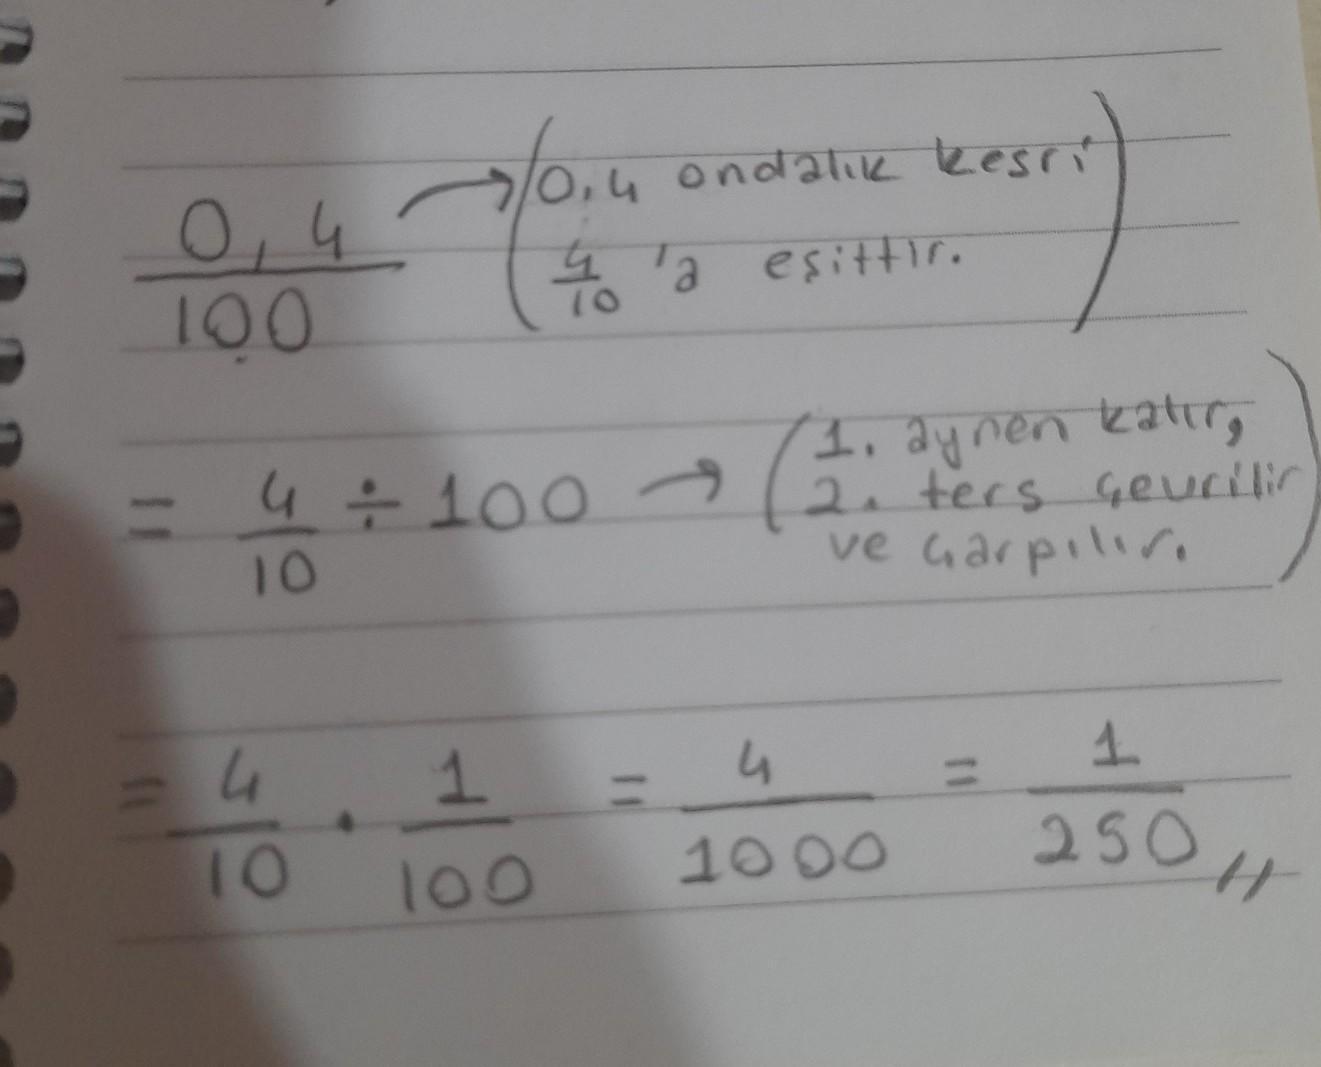 0,4 / 100 → (0,4 ondalık kesri
4/10 'a eşittir.)
= 4/10 ÷ 100 → (1. aynen kalır,
2. ters çevrilir
ve çarpılır.)
= 4/10 . 1/100 = 4/1000 = 1/250 //